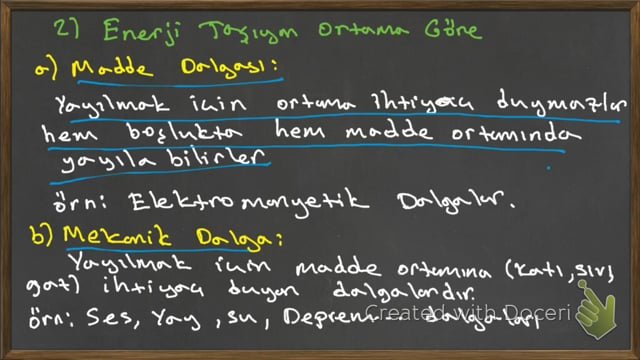 2) Enerji Taşıyan Ortama Göre
a) Madde Dalgası:
Yayılmak için ortama ihtiyacı duymazlar
hem boşlukta hem madde ortamında
yayıla bilirler
örn: Elektromanyetik Dalgalar.
b) Mekanik Dalga:
Yayılmak için madde ortamına (katı, sıvı,
gaz) ihtiyaç duyan dalgalardır.
örn: Ses, Yay, su, Deprem... Dalgaları
Created with Doceri